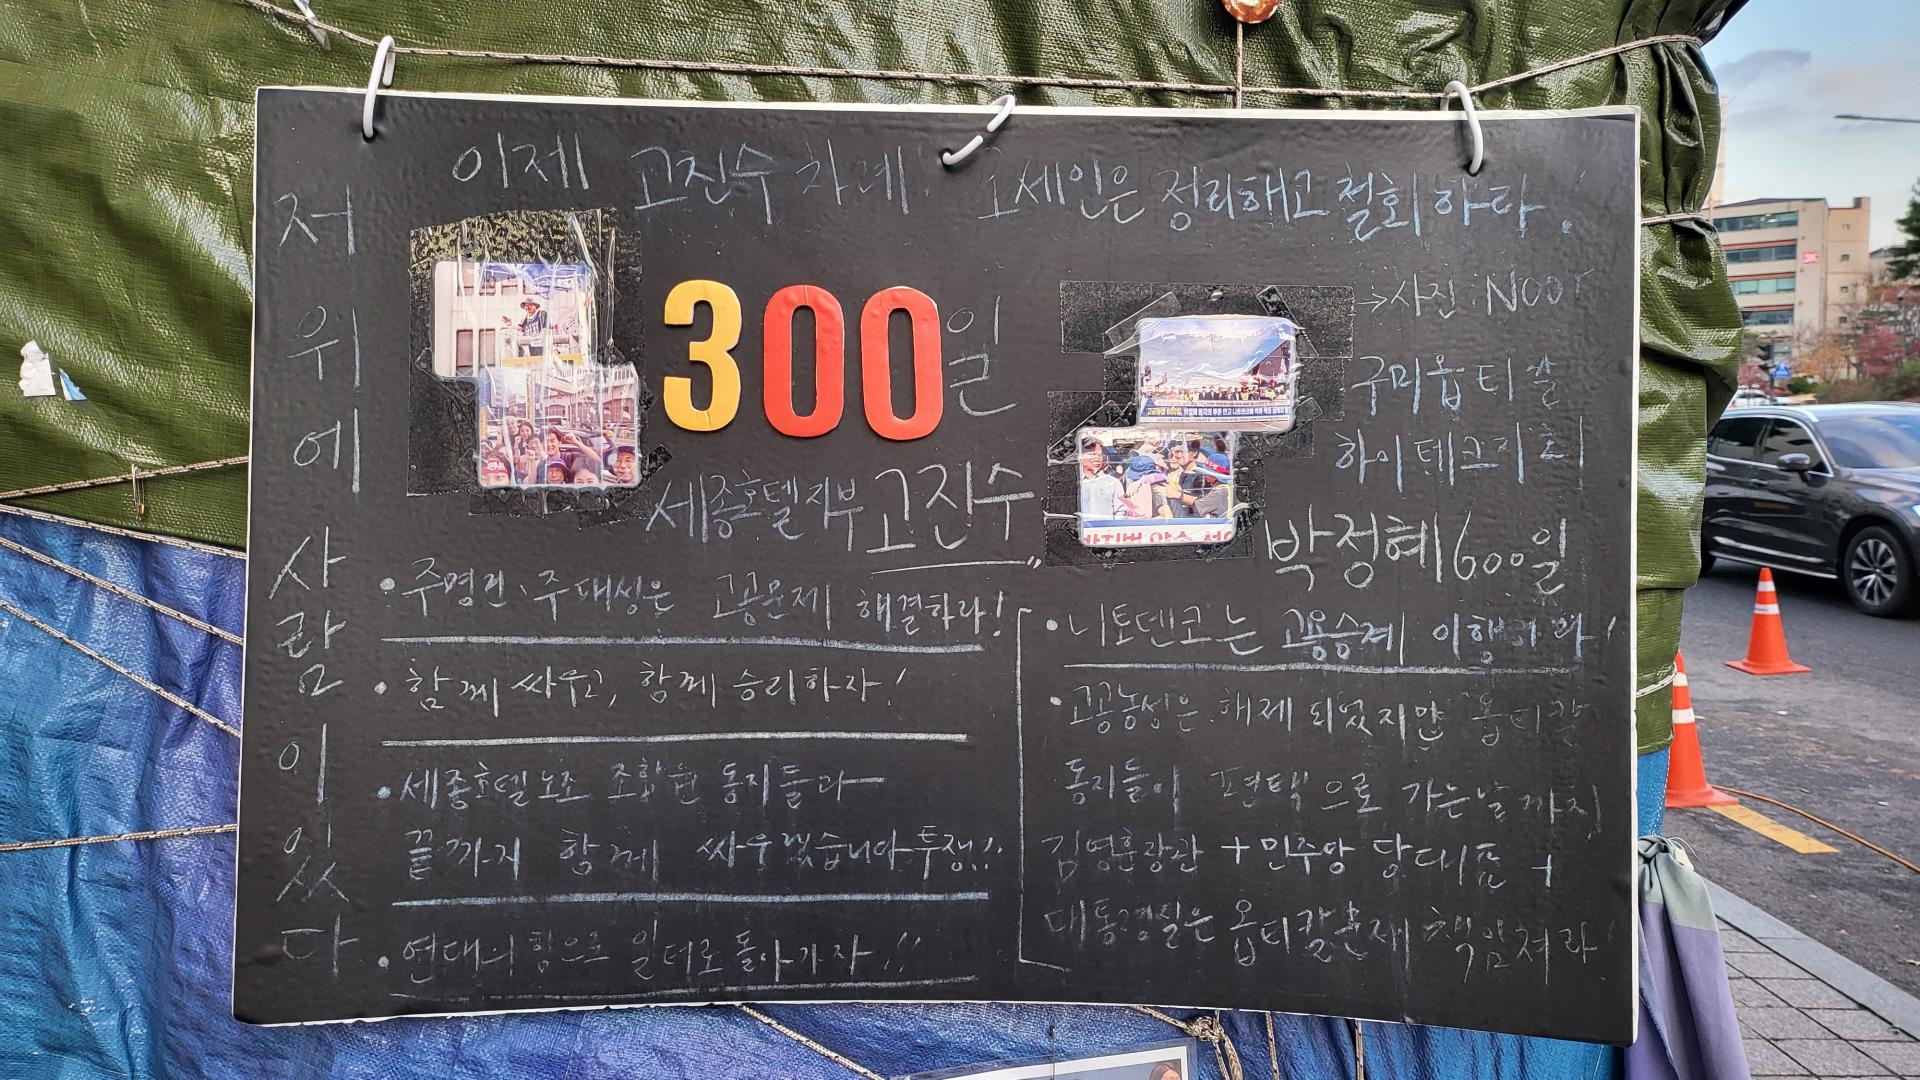 저 위에 사람이 있다
이제 고진수 차례! 오세인은 정리해고 철회하라!
300일
세종호텔지부 고진수
• 주명건, 주대성은 고공문제 해결하라!
• 함께 싸우고, 함께 승리하자!
• 세종호텔노조 조합원 동지들과
끝까지 함께 싸우겠습니다 투쟁!!
• 연대의 힘으로 일터로 돌아가자!!
→사진:NOOY
구미옵티칼
하이테크지회
박정혜 600일
• 니토덴코는 고용승계 이행하라!
• 고공농성은 해제 되었지만 옵티칼
동지들이 평택으로 가는날까지
김영훈장관 + 민주당 당대표 +
대통령실은 옵티칼문제 책임져라!